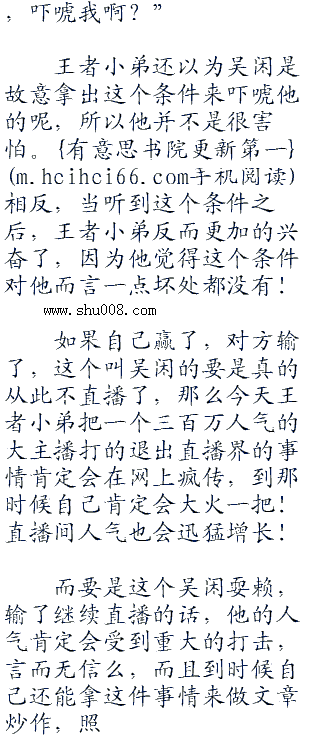 ，吓唬我啊？”
王者小弟还以为吴闲是
故意拿出这个条件来吓唬他
的呢，所以他并不是很害
怕。{有意思书院更新第一}
(m.hcihci66.com手机阅读)
相反，当听到这个条件之
后，王者小弟反而更加的兴
奋了，因为他觉得这个条件
对他而言一点坏处都没有！
www.shu008.com
如果自己赢了，对方输
了，这个叫吴闲的要是真的
从此不直播了，那么今天王
者小弟把一个三百万人气的
大主播打的退出直播界的事
情肯定会在网上疯传，到那
时候自己肯定会大火一把！
直播间人气也会迅猛增长！
而要是这个吴闲耍赖，
输了继续直播的话，他的人
气肯定会受到重大的打击，
言而无信么，而且到时候自
己还能拿这件事情来做文章
炒作，照